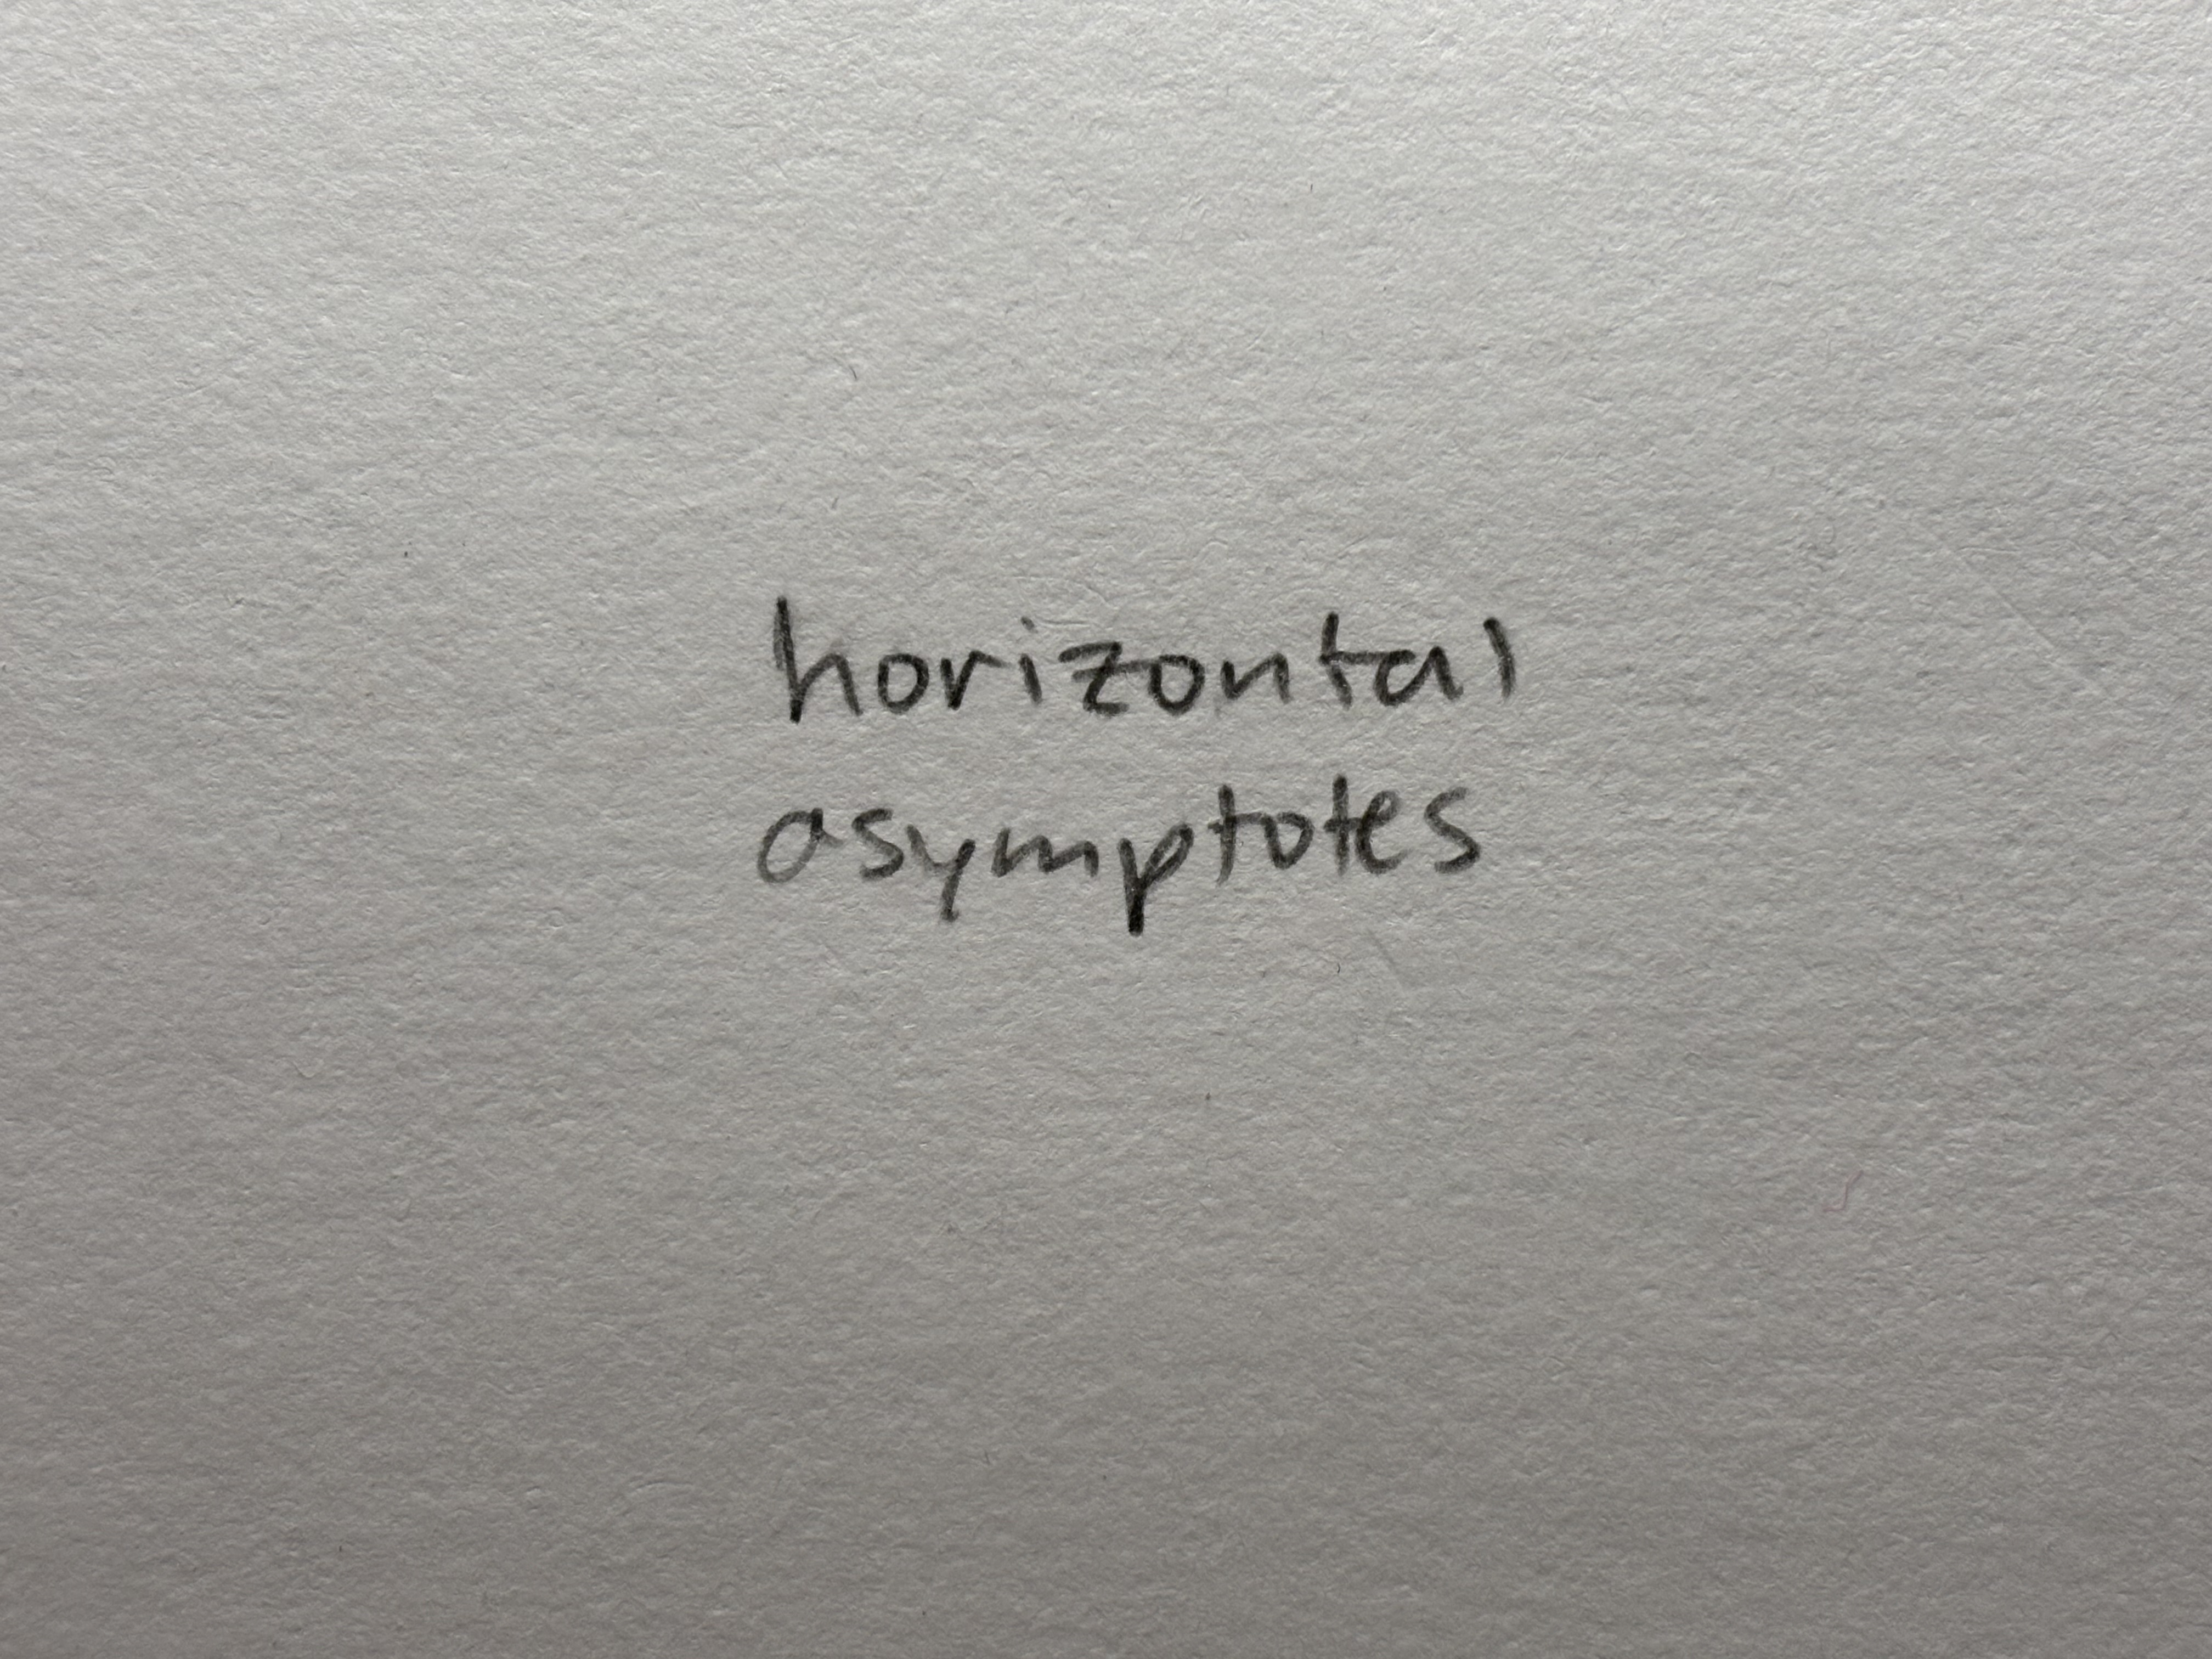 horizontal
asymptotes